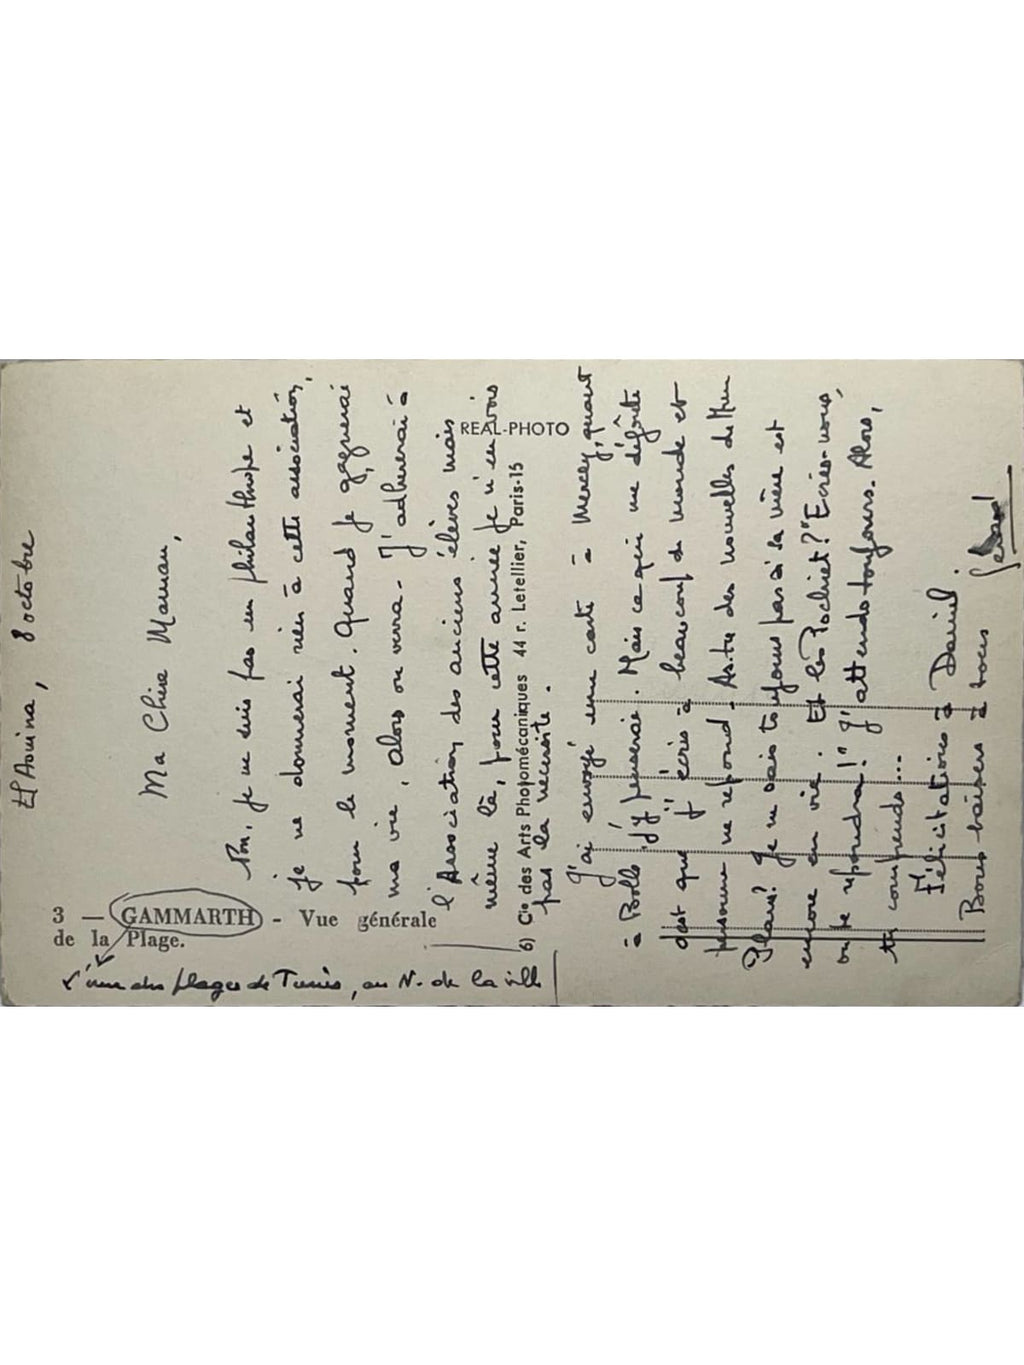 El Aouina, 8 octobre
Ma Chère Maman,
Bon, je ne suis pas un philanthrope et
je ne donnerai rien à cette association,
pour le moment. Quand je gagnerai
ma vie, alors on verra - J'adhérerai à
l'Association des anciens élèves mais
même là, pour cette année je n'en vois
pas la nécessité.
J'ai envoyé une carte à Mercey, quant
à j'y penserai. Mais ce qui me dégoûte
c'est que j'écris à beaucoup de monde et
personne ne répond. As-tu des nouvelles de
Je ne sais toujours pas si la mère est
encore en vie. Et les Pochiet? "Écris-nous,
on te répondra!" J'attends toujours. Alors,
tu comprends...
Félicitations à Daniel
Bons baisers à tous
Gérard
3 — GAMMARTH - Vue générale
de la Plage.
l'une des plages de Tunis, au N. de la ville
REAL-PHOTO
6) Cie des Arts Photomécaniques 44 r. Letellier, Paris-15